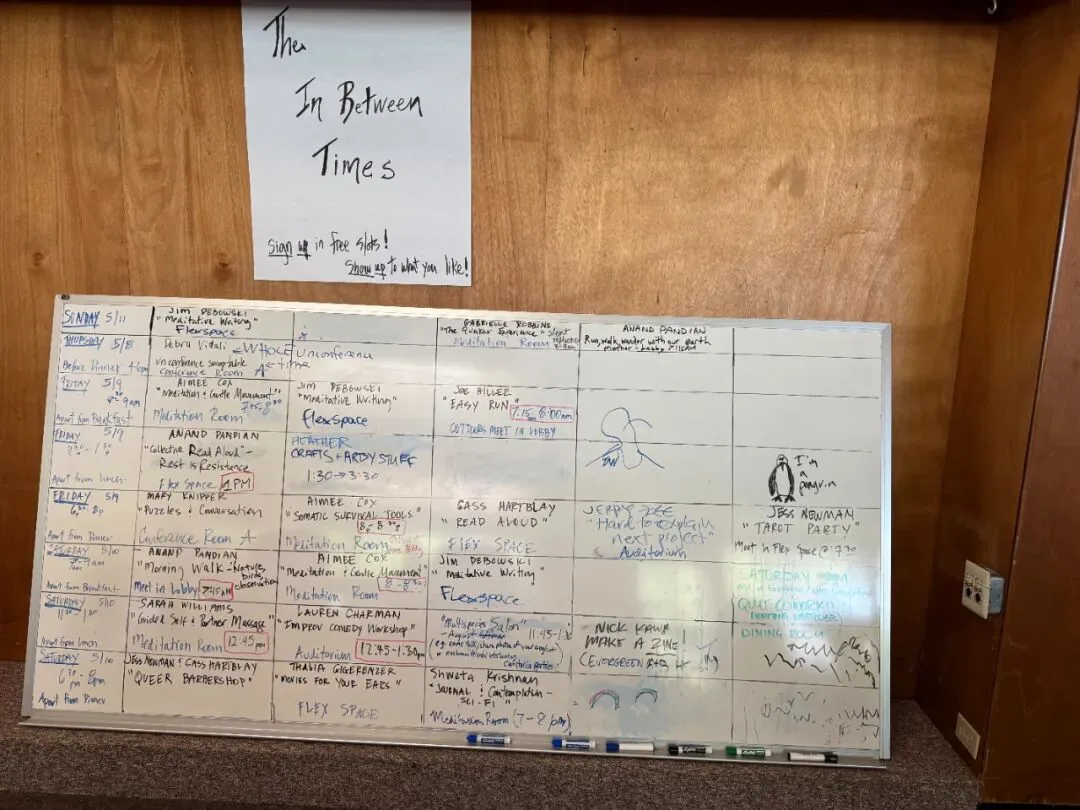 The
In Between
Times
Sign up in free slots!
Show up to what you like!
SUNDAY 5/11
JIM DEBOWSKI
"Meditative Writing"
Flexspace
GABRIELLE ROBBINS
"The Quaker Experience"
Meditation Room
ANAND PANDIAN
Run, walk, wander with our earth
mother - Lobby 7:15AM
THURSDAY 5/8
Before Dinner
Debra Vidali
unconference
Conference Room A
← WHOLE unconference
time
FRIDAY 5/9
9am
Apart from Breakfast
AIMEE COX
"Meditation & Gentle Movement"
7:15-8:30
Meditation Room
JIM DEBOWSKI
"Meditative Writing"
flexspace
JOE HILLER
"EASY RUN" 7:15-8:00am
OUTDOORS MEET IN LOBBY
FRIDAY 5/9
Apart from Lunch
ANAND PANDIAN
"Collective Read Aloud" -
Rest is Resistence
Flex Space 1PM
HEATHER
CRAFTS + ARTSY STUFF
1:30 → 3:30
I'm
a
penguin
FRIDAY 5/9
6:30 - 8p
Apart from Dinner
MARY KNIPPER
"Puzzles & Conversation"
Conference Room A
AIMEE COX
"SOMATIC SURVIVAL TOOLS"
Meditation Room
CASS HARTBLAY
"READ ALOUD"
FLEX SPACE
JERRY ZEE
"Hard to explain
next project"
Auditorium
JESS NEWMAN
"TAROT PARTY"
Meet in Flex Space @ 7:30
SATURDAY 5/10
9am
Apart from Breakfast
ANAND PANDIAN
"Morning Walk - Nature,
birds,
observation
Meet in Lobby 7:15AM
AIMEE COX
"Meditation & Gentle Movement"
8-8:30
Meditation Room
JIM DEBOWSKI
"Meditative Writing"
Flexspace
SATURDAY
QUIET COWORKING
DINING ROOM
SATURDAY 5/10
Apart from Lunch
SARAH WILLIAMS
"Guided Self & Partner Massage"
Meditation Room 12:45pm
LAUREN CHARMAN
"IMPROV COMEDY WORKSHOP"
Auditorium 12:45-1:30pm
"Multispecies Salon"
11:45-1:30
NICK KAWA
MAKE A ZINE!
SATURDAY 5/10
6:30 - 8pm
Apart from Dinner
JESS NEWMAN & CASS HARTBLAY
"QUEER BARBERSHOP"
THALIA GIGERENZER
"MOVIES FOR YOUR EARS"
FLEX SPACE
Shweta Krishnan
"JOURNAL & Contemplation -
SCI-FI"
Meditation Room (7-8 pm)